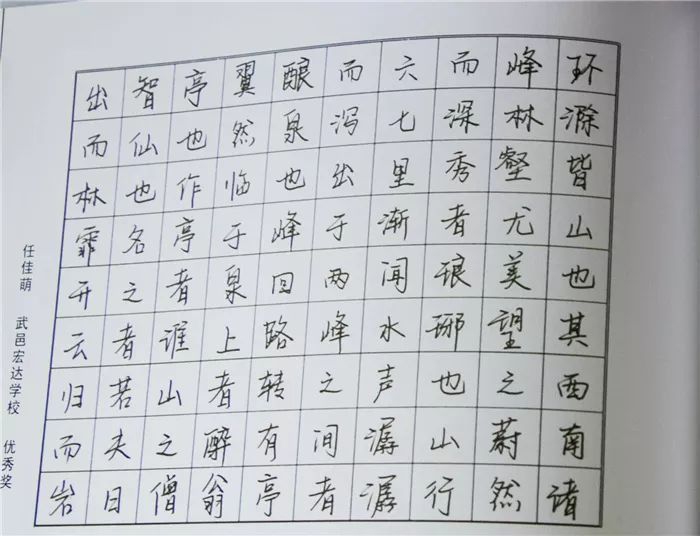 环滁皆山也其西南诸
峰林壑尤美望之蔚然
而深秀者琅琊也山行
六七里渐闻水声潺潺
而泻出于两峰之间者
酿泉也峰回路转有亭
翼然临于泉上者醉翁
亭也作亭者谁山之僧
智仙也名之者若夫日
出而林霏开云归而岩
任佳萌 武邑宏达学校 优秀奖